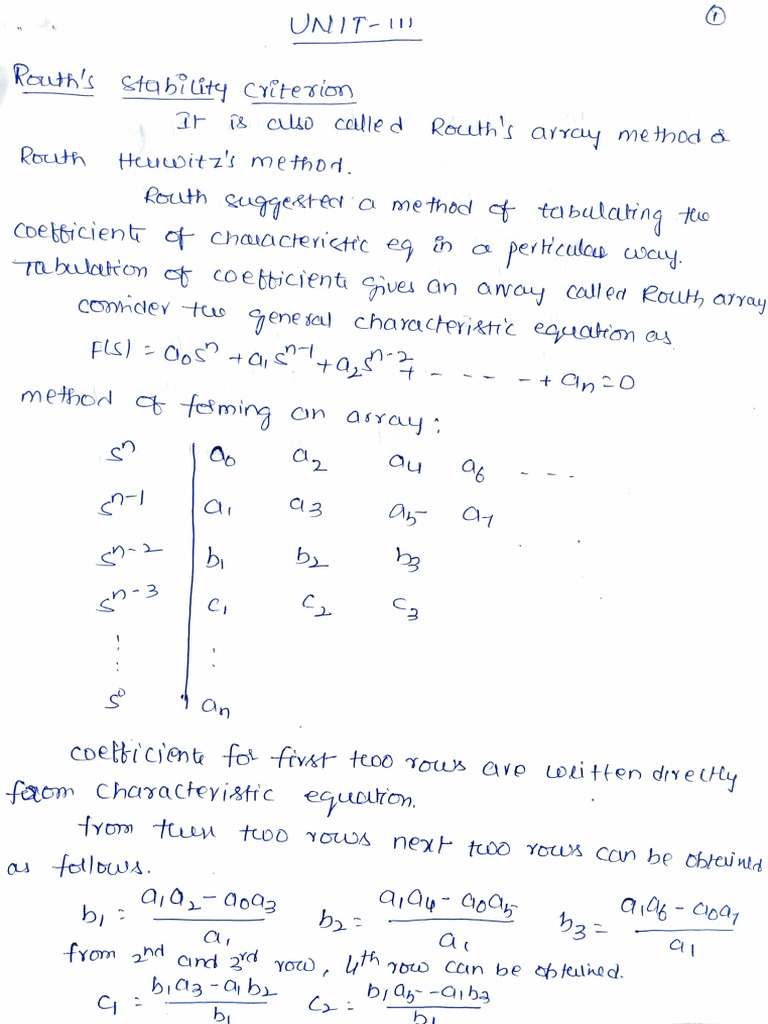 ①
UNIT-III
Routh's stability criterion
It is also called Routh's array method &
Routh Heuwitz's method.
Routh suggested a method of tabulating the
coefficient of characteristic eq in a perticular way.
Tabulation of coefficients gives an array called Routh array
consider the general characteristic equation as
F(s) = a₀sⁿ + a₁sⁿ⁻¹ + a₂sⁿ⁻² + - - - - - + aₙ = 0
method of forming an array:
sⁿ | a₀ a₂ a₄ a₆ - - -
sⁿ⁻¹ | a₁ a₃ a₅ a₇
sⁿ⁻² | b₁ b₂ b₃
sⁿ⁻³ | c₁ c₂ c₃
⋮ | ⋮
s⁰ | aₙ
coefficients for first two rows are written directly
from characteristic equation.
from these two rows next two rows can be obtained
as follows.
b₁ = (a₁a₂ - a₀a₃)/a₁ b₂ = (a₁a₄ - a₀a₅)/a₁ b₃ = (a₁a₆ - a₀a₇)/a₁
from 2nd and 3rd row, 4th row can be obtained.
c₁ = (b₁a₃ - a₁b₂)/b₁ c₂ = (b₁a₅ - a₁b₃)/b₁